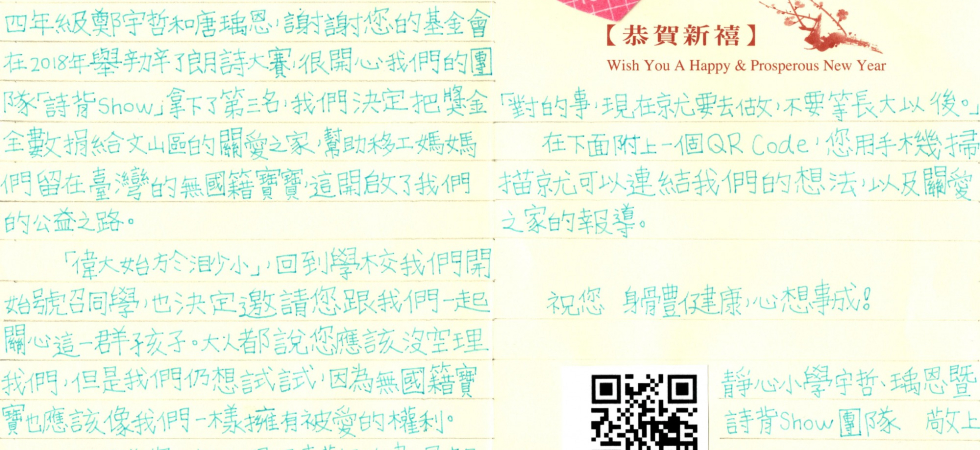 四年級鄭宇哲和唐瑀恩,謝謝您的基金會
在2018年舉辦了朗詩大賽,很開心我們的團
隊「詩背Show」拿下了第三名,我們決定把獎金
全數捐給文山區的關愛之家,幫助移工媽媽
們留在臺灣的無國籍寶寶,這開啟了我們
的公益之路。
「偉大始於渺小」,回到學校我們開
始號召同學,也決定邀請您跟我們一起
關心這一群孩子。大人都說您應該沒空理
我們,但是我們仍想試試,因為無國籍寶
寶也應該像我們一樣擁有被愛的權利。
【恭賀新禧】
Wish You A Happy & Prosperous New Year
「對的事,現在就要去做,不要等長大以後。
在下面附上一個QR Code,您用手機掃
描就可以連結我們的想法,以及關愛
之家的報導。
祝您 身體健康,心想事成!
靜心小學宇哲、瑀恩暨
詩背Show團隊 敬上